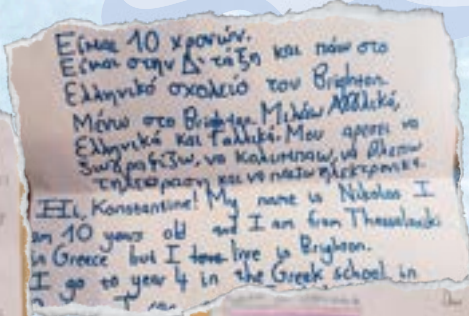 Είμαι 10 χρονών.
Είμαι στην Δ' τάξη και πάω στο
Ελληνικό σχολείο του Brighton.
Μένω στο Brighton. Μιλάω Αγγλικά,
Ελληνικά και Γαλλικά. Μου αρέσει να
ζωγραφίζω, να κολυμπάω, να βλέπω
τηλεόραση και να παίζω ηλεκτρονικά.
Hi, Konstantine! My name is Nikolas I
am 10 years old and I am from Thessaloniki
in Greece but I live in Brighton.
I go to year 4 in the Greek school in